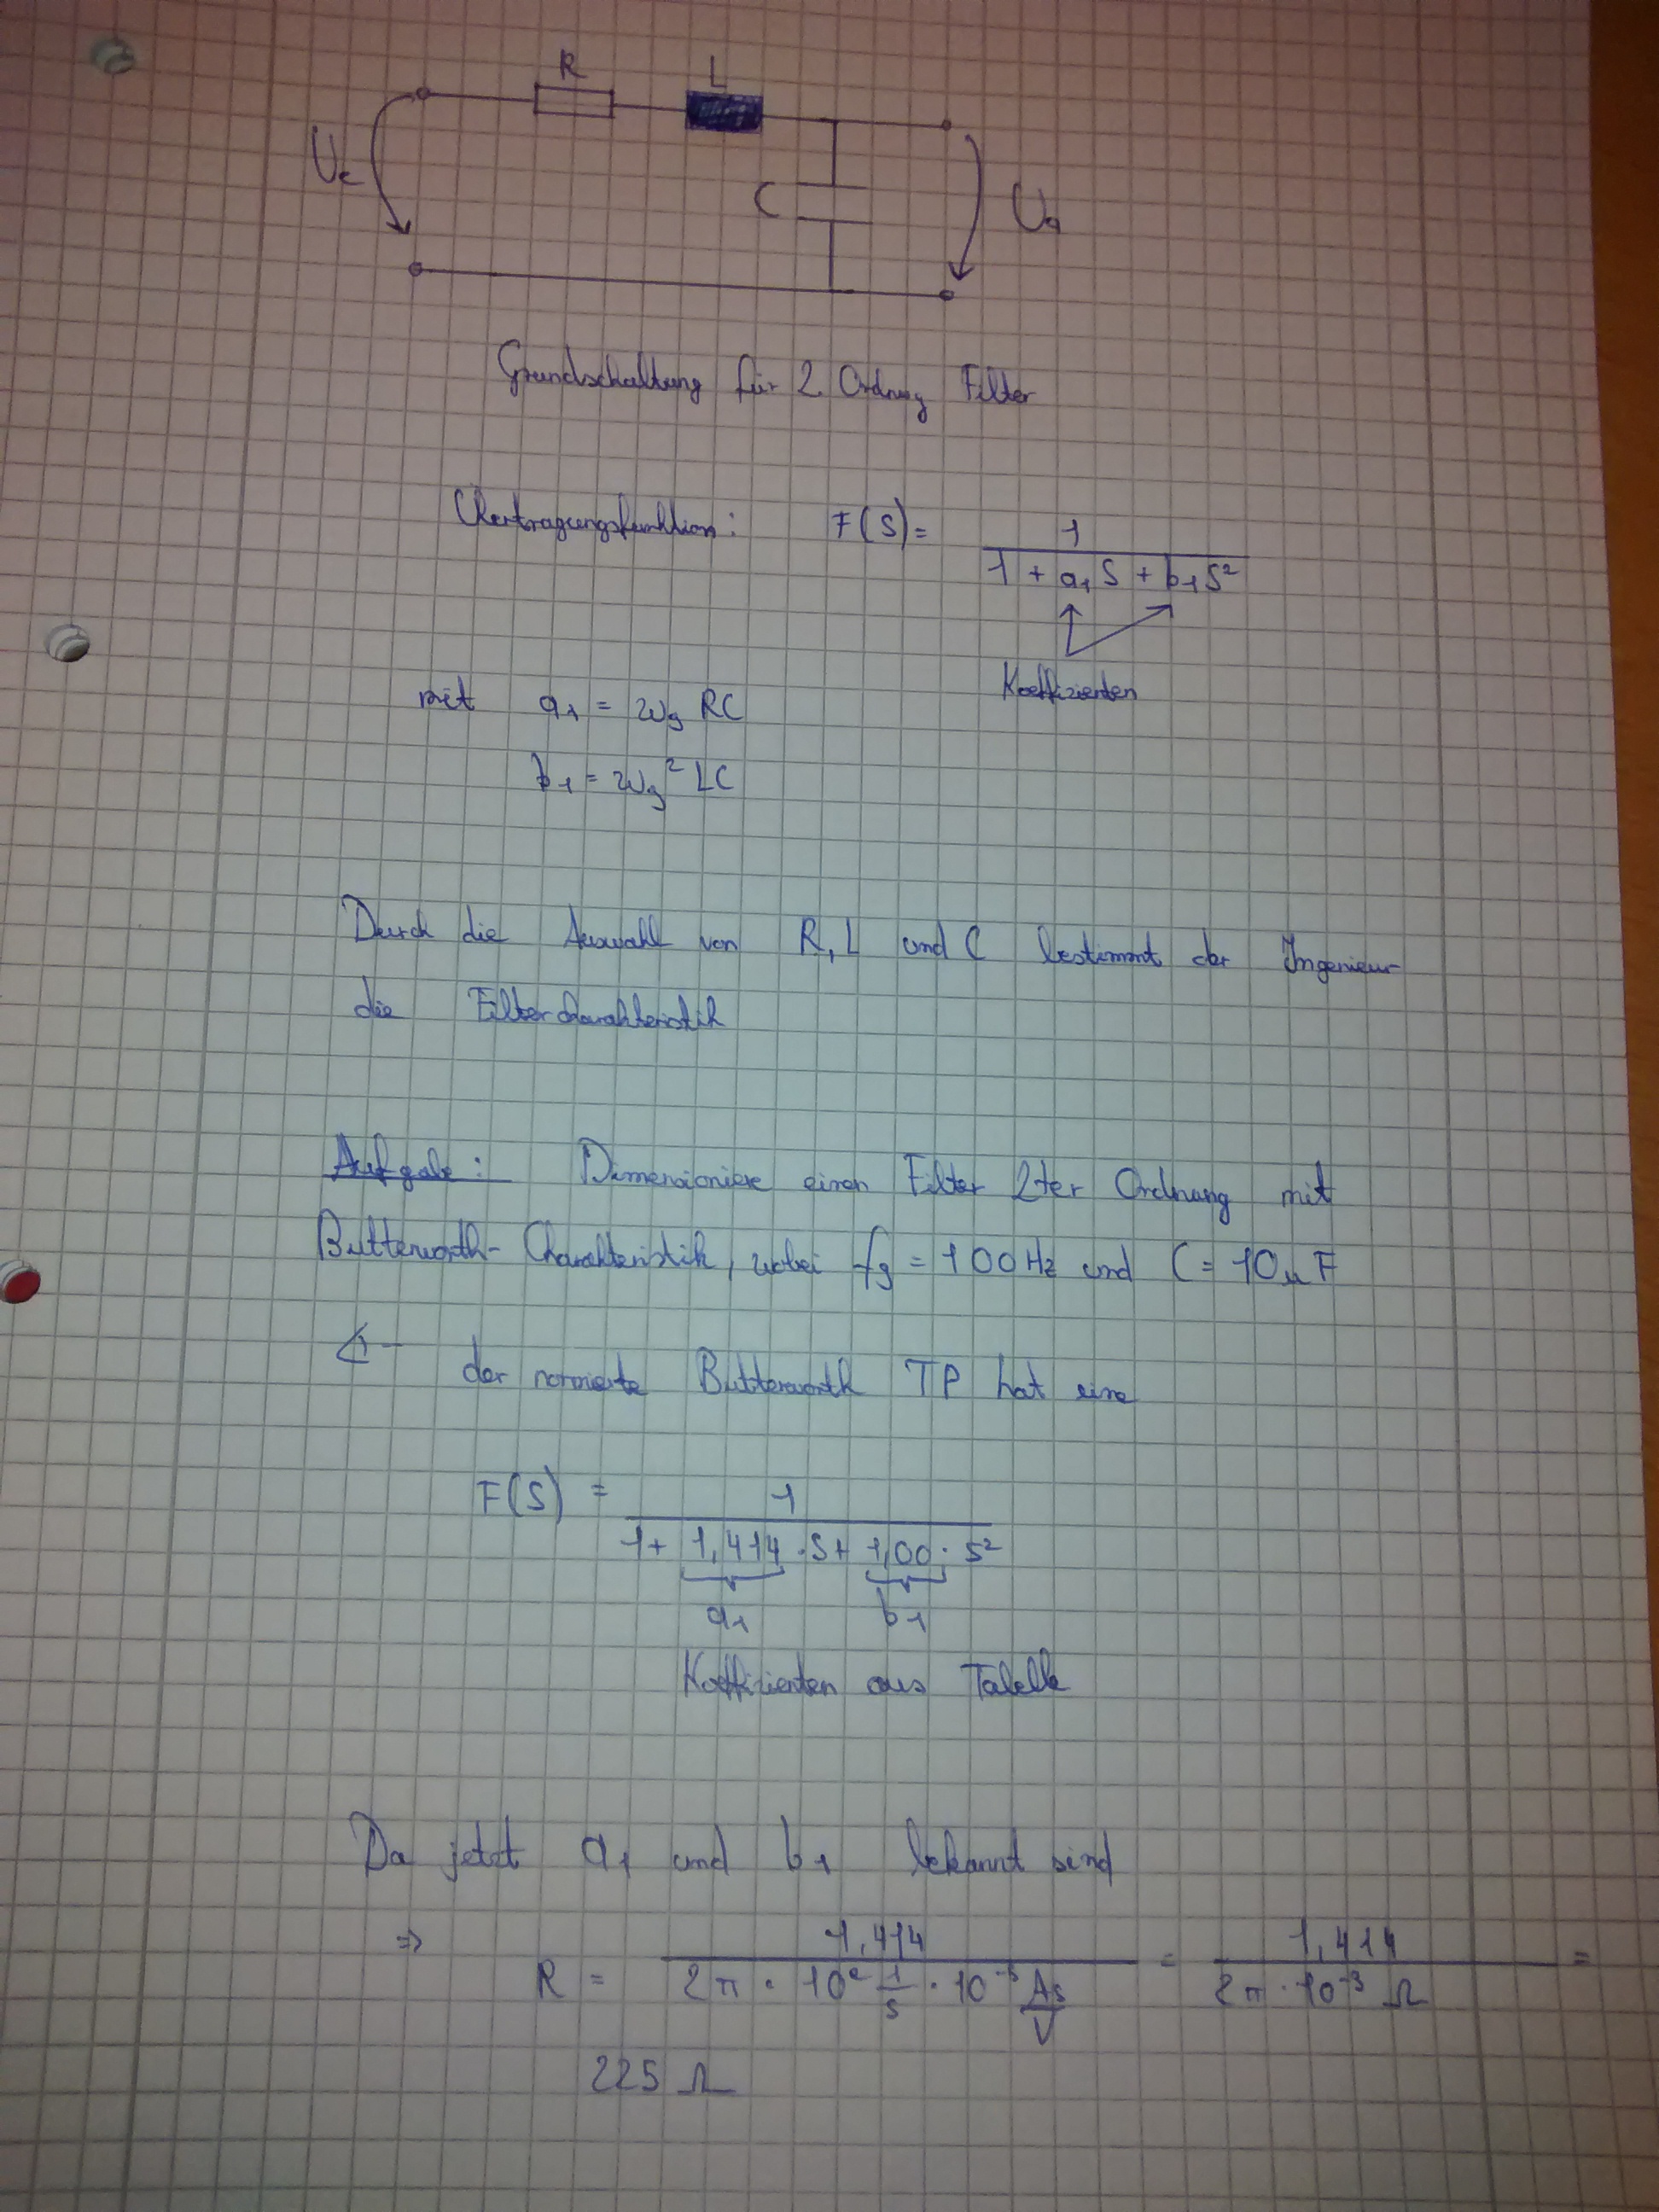 R
L
Ue
C
Ua
Grundschaltung für 2. Ordnung Filter
Übertragungsfunktion: F(S) = 1 / (1 + a₁S + b₁S²)
Koeffizienten
mit a₁ = ωg RC
b₁ = ωg² LC
Durch die Auswahl von R, L und C bestimmt der Ingenieur
die Filtercharakteristik
Aufgabe: Dimensioniere einen Filter 2ter Ordnung mit
Butterworth-Charakteristik, wobei fg = 100Hz und C = 10µF
der normierte Butterworth TP hat eine
F(S) = 1 / (1 + 1,414 · S + 1,00 · S²)
a₁ b₁
Koeffizienten aus Tabelle
Da jetzt a₁ und b₁ bekannt sind
⇒ R = 1,414 / (2π · 10² 1/s · 10⁻⁵ As/V) = 1,414 / (2π · 10⁻³ Ω) =
225 Ω